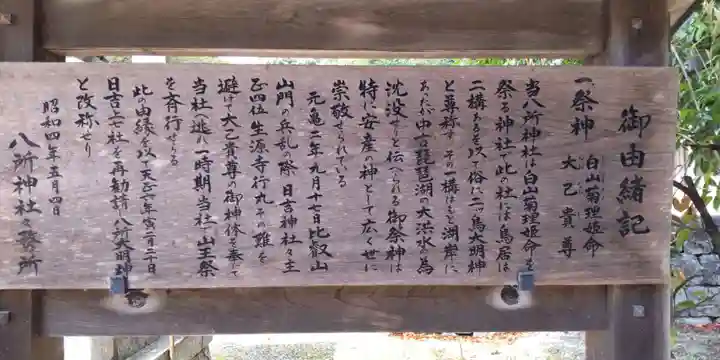 御由緒記
一、祭神 白山菊理姫命
大己貴尊
当八所神社は白山菊理姫命を
祭る神社で此の社には鳥居は
二構あるを以て俗に二ッ鳥大明神
と尊称す その一構はもと湖岸に
あったが中古琵琶湖の大洪水の為
沈没せりと伝へられる御祭神は
特に安産の神として広く世に
崇敬せられている
元亀二年九月十七日比叡山
山門の兵乱の際日吉神社々主
正四位生源寺行丸その難を
避けて大己貴尊の御神体を奉じて
当社へ逃れ一時期当社で山王祭
を斉行せらる
此の由縁を以て天正六年寅二月二十日
日吉七社を再勧請し八所大明神
と改称せり
昭和四年五月四日
八所神社々務所